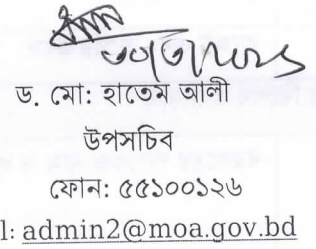 ড. মো: হাতেম আলী
উপসচিব
ফোন: ৫৫১০০১২৬
l: admin2@moa.gov.bd